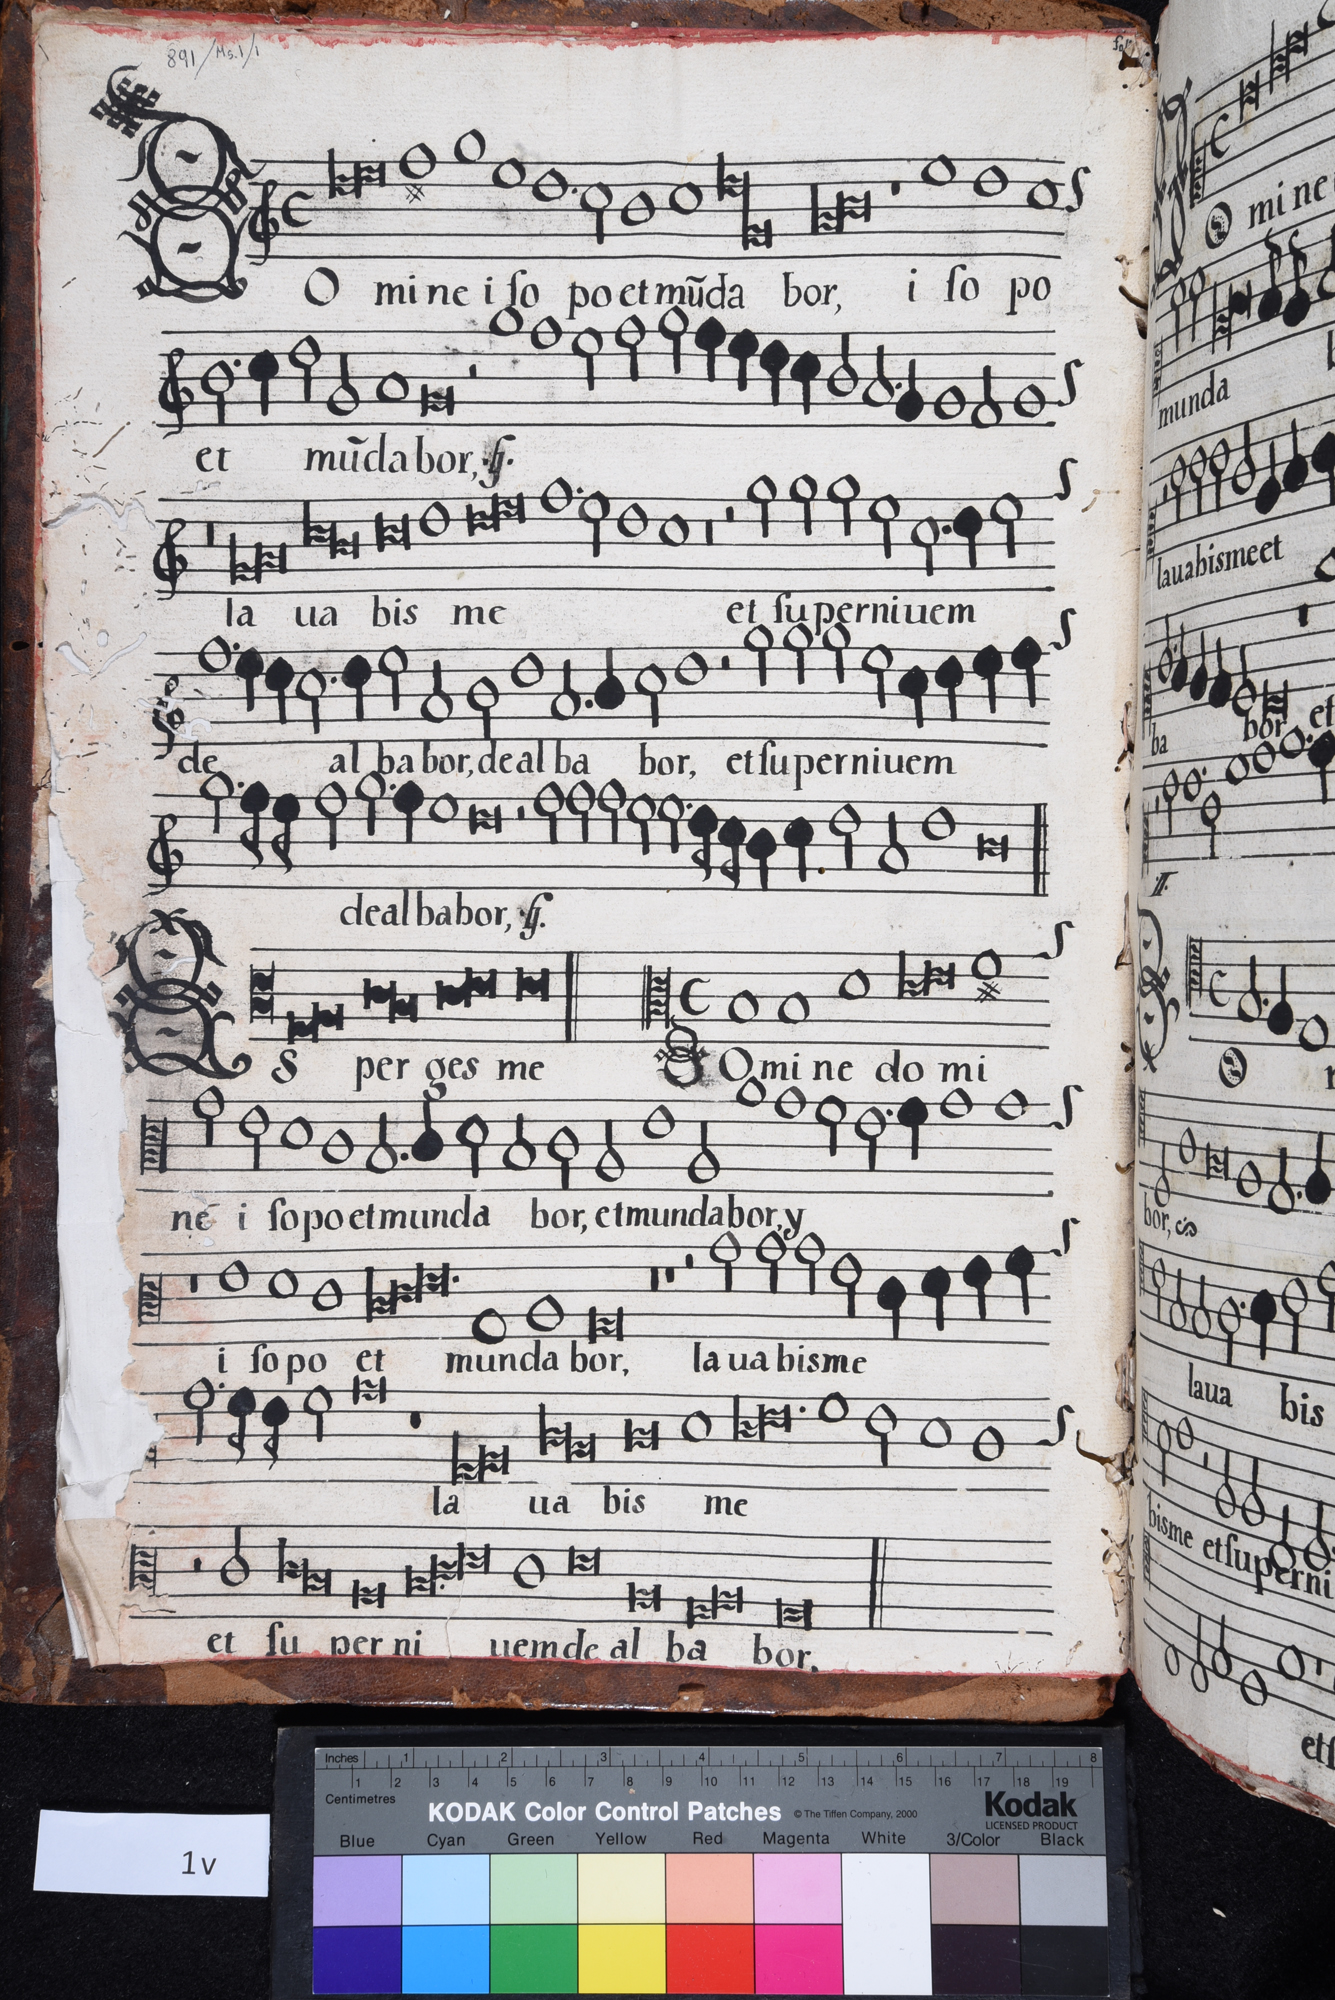 891/Ms.1/1
fol
O mi ne i ſo po et mũda bor, i ſo po
et mũda bor, ij.
la ua bis me et ſu perniuem
de al ba bor, de al ba bor, et ſu per niuem
de al ba bor, ij.
S per ges me Domi ne do mi
ne i ſo po et munda bor, et munda bor, y
i ſo po et munda bor, la ua bis me
la ua bis me
et ſu per ni uem de al ba bor,
O mi ne
munda
laua bis me et
ba bor et
II.
O
bor,
laua bis
bis me et ſu perni
etſ
Inches 1 2 3 4 5 6 7 8
1 2 3 4 5 6 7 8 9 10 11 12 13 14 15 16 17 18 19
Centimetres
KODAK Color Control Patches © The Tiffen Company, 2000 Kodak
LICENSED PRODUCT
Blue Cyan Green Yellow Red Magenta White 3/Color Black
1v